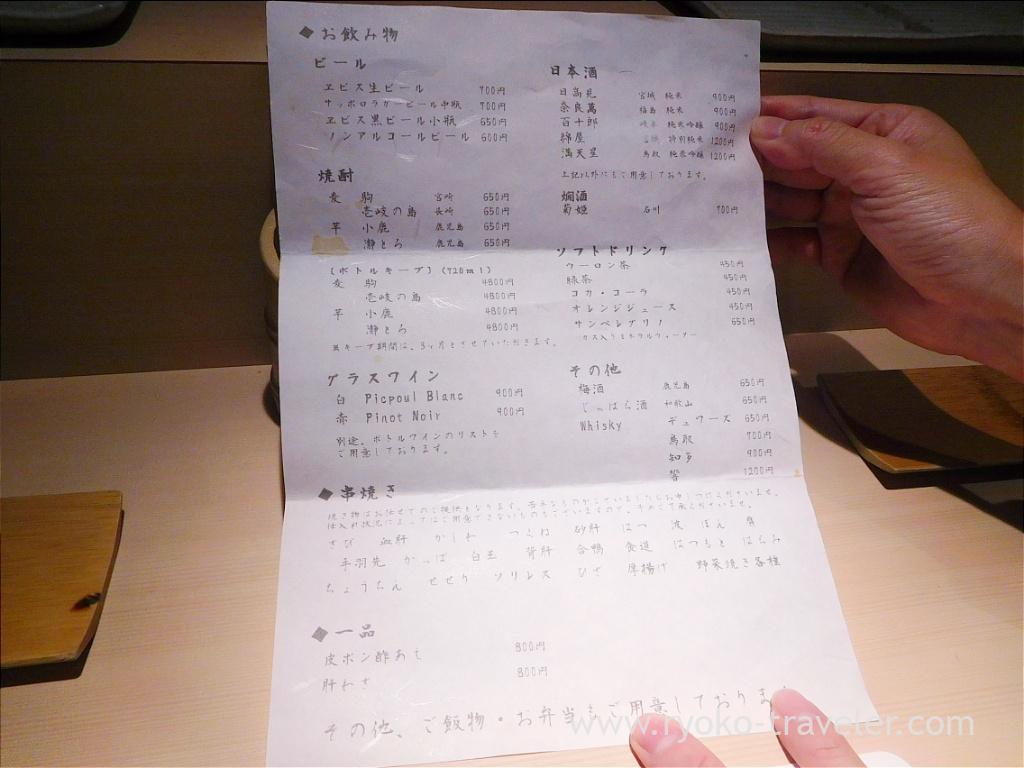 ◆お飲み物
ビール
ヱビス生ビール 700円
サッポロラガービール中瓶 700円
ヱビス黒ビール小瓶 650円
ノンアルコールビール 600円
焼酎
麦 駒 宮崎 650円
壱岐の島 長崎 650円
芋 小鹿 鹿児島 650円
灘とろ 鹿児島 650円
(ボトルキープ)(720ml)
麦 駒 4800円
壱岐の島 4800円
芋 小鹿 4800円
灘とろ 4800円
※キープ期間は、3ヶ月とさせていただきます。
グラスワイン
白 Picpoul Blanc 900円
赤 Pinot Noir 900円
別途、ボトルワインのリストを
ご用意しております。
日本酒
日高見 宮城 純米 900円
奈良萬 福島 純米 900円
百十郎 岐阜 純米吟醸 900円
綿屋 宮城 特別純米 1200円
満天星 鳥取 純米吟醸 1200円
上記以外にもご用意しております。
燗酒
菊姫 石川 700円
ソフトドリンク
ウーロン茶 450円
緑茶 450円
コカ・コーラ 450円
オレンジジュース 450円
サンペレグリノ 650円
ガス入りミネラルウォーター
その他
梅酒 鹿児島 650円
じゃばら酒 和歌山 650円
Whisky デュワーズ 650円
鳥取 700円
知多 900円
響 1200円
◆串焼き
焼き物はお任せでのご提供となります。苦手なものがございましたらお申しつけくださいませ。
仕入れ状況によってはご用意できないものもございますので、予めご了承くださいませ。
さび 血肝 かしわ つくね 砂肝 はつ 波 ぼん 背
手羽先 かっぱ 白玉 背肝 合鴨 食道 はつもと はらみ
ちょうちん せせり ソリレス ひざ 厚揚げ 野菜焼き各種
◆一品
皮ポン酢あえ 800円
肝わさ 800円
その他、ご飯物・お弁当もご用意しております
www.ryoko-traveler.com